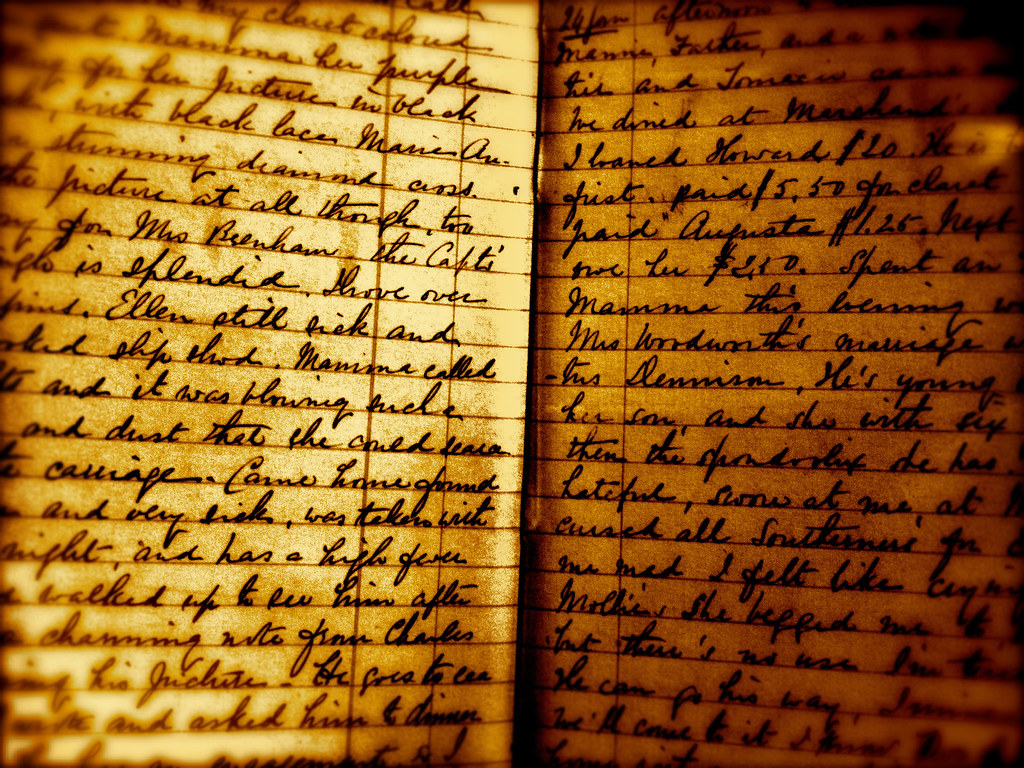 my claret colored
Mamma her purple
for her Picture in black
with black lace Marie An-
stunning diamond cross.
the picture at all though, too
for Mrs Benham the Capt's
is splendid. Drove over
Ellen still sick and
slip shod. Mamma called
and it was blowing such a
and dust that she could scarce
carriage. Came home found
and very sick, was taken with
night, and has a high fever
walked up to see him after
a charming note from Charles
his Picture - He goes to sea
and asked him to dinner
& I
24 Jan afternoon
Mamma, Father, and a
his and
We dined at Marchand's
I loaned Howard $20. He is
first. paid $5.50 for claret
paid Augusta $1.25. Next
owe her $2.50. Spent an
Mamma this evening
Mrs Woodworth's marriage
Dennison, He's young
her son, and she with six
then the spondoolix she has.
hateful, swore at me, at
cursed all Southerners for
me mad I felt like crying
Mollie, she begged me to
but there's no use I'm
He can go his way,
We'll come to it I know